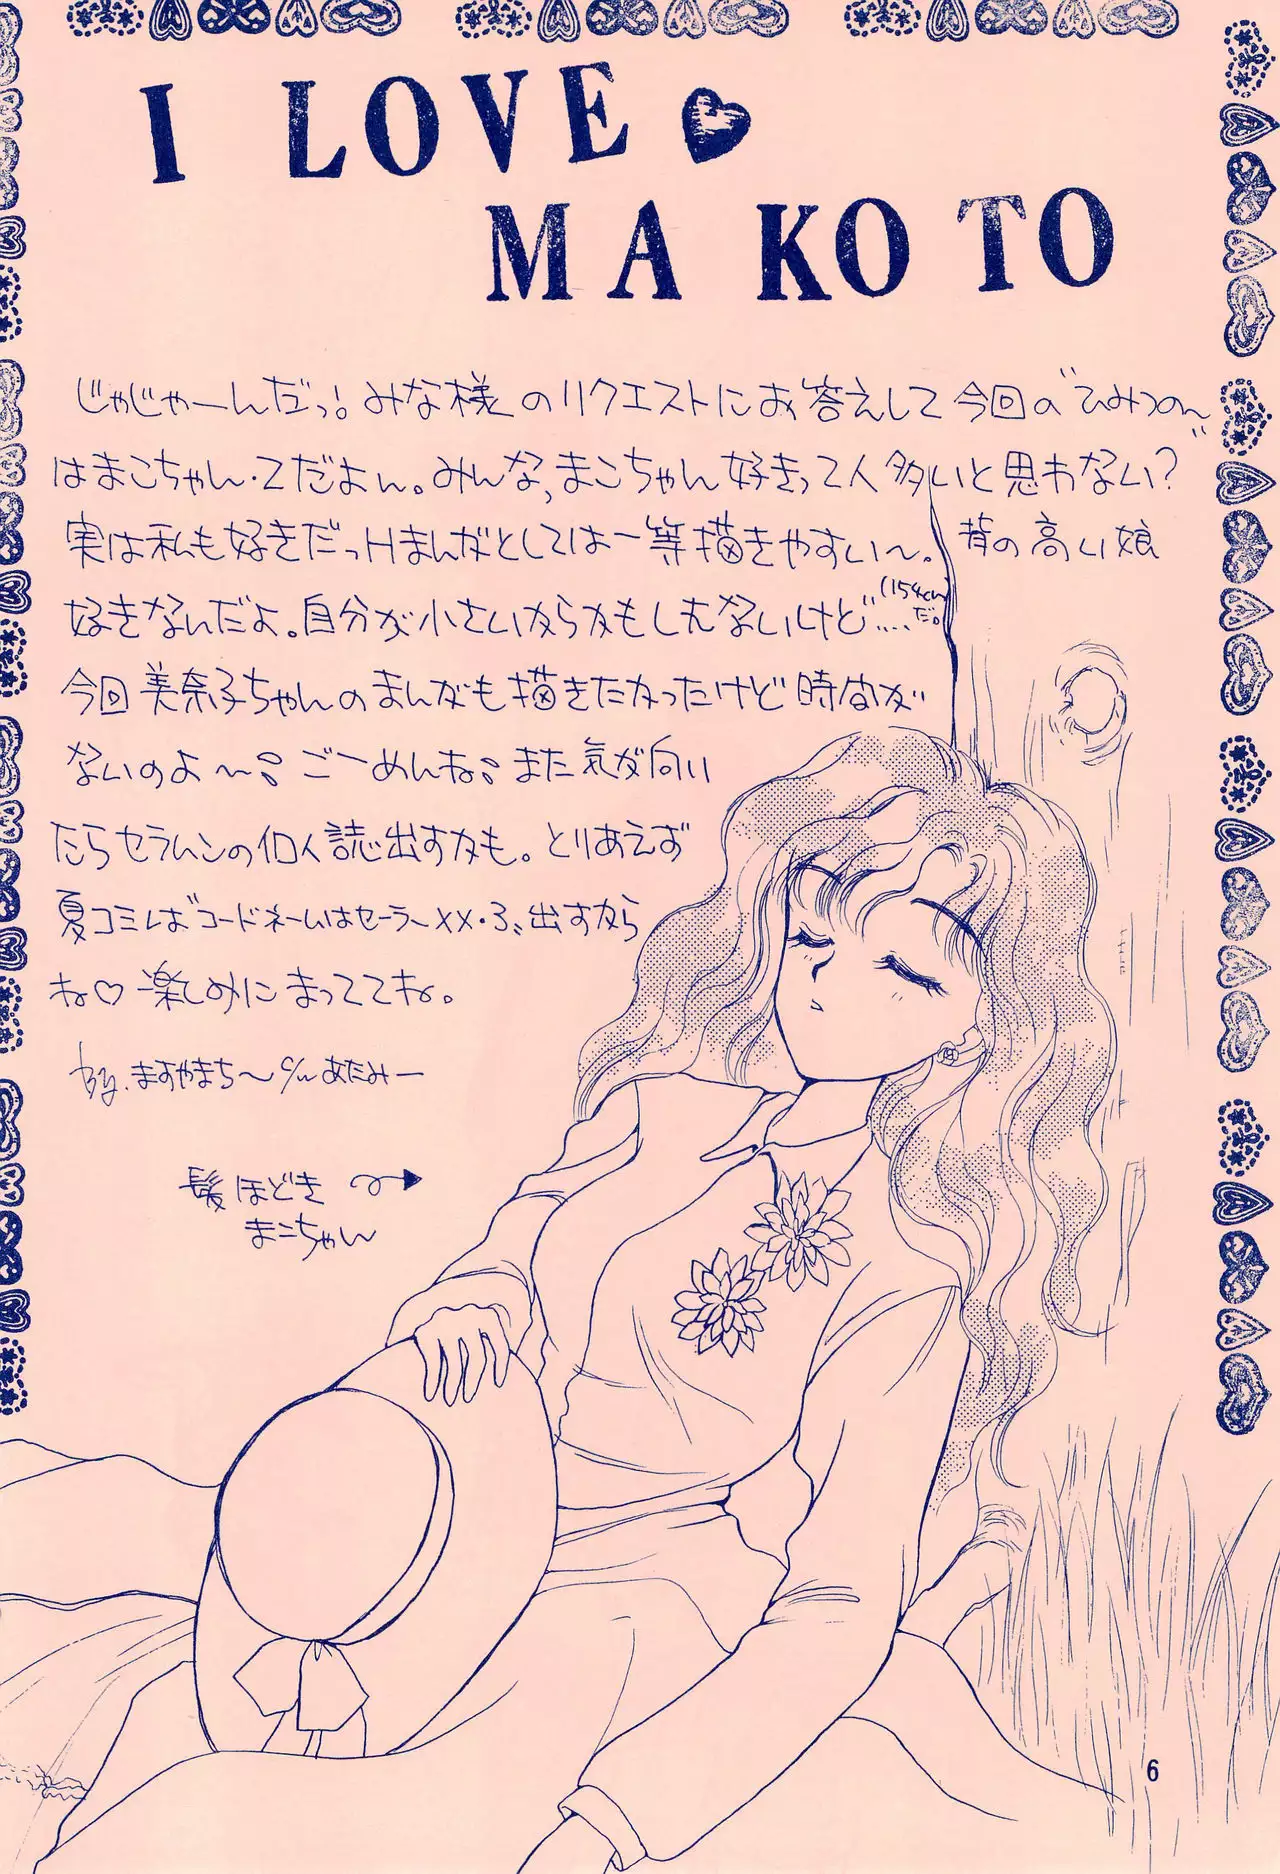 I LOVE
MAKOTO
じゃじゃーんだっ!みな様のリクエストにお答えして今回の"ひみつの〜"
はまこちゃん・Zだよん。みんな,まこちゃん好きって人多いと思わない?
実は私も好きだっHまんがとしては一等描きやすい〜。背の高い娘
好きなんだよ。自分が小さいからかもしんないけど……(154cmだ。)
今回美奈子ちゃんのまんがも描きたかったけど時間が
ないのよ〜 ごーめんね また気が向い
たらセラムンの個人誌出すかも。とりあえず
夏コミは"コードネームはセーラーxx・3"出すから
ね♡楽しみにまっててね。
by.ますやまち〜 あたみー
髪ほどき
まこちゃん
6